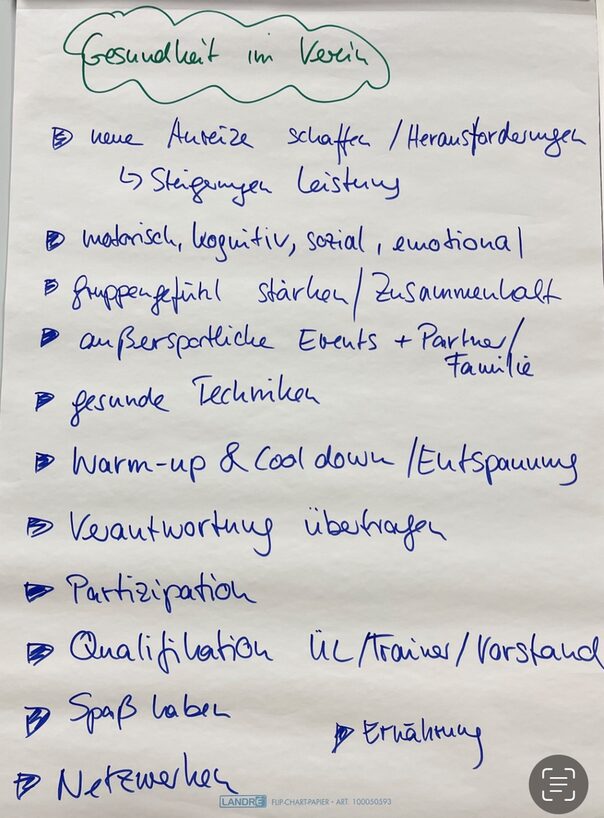 Gesundheit im Verein
neue Anreize schaffen / Herausforderungen
↳ Steigerungen Leistung
motorisch, kognitiv, sozial, emotional
Gruppengefühl stärken / Zusammenhalt
außersportliche Events + Partner/
Familie
gesunde Techniken
Warm-up & Cool down / Entspannung
Verantwortung übertragen
Partizipation
Qualifikation ÜL/Trainer/Vorstand
Spaß haben
Ernährung
Netzwerken
LANDRÉ FLIP-CHART-PAPIER • ART. 100050593